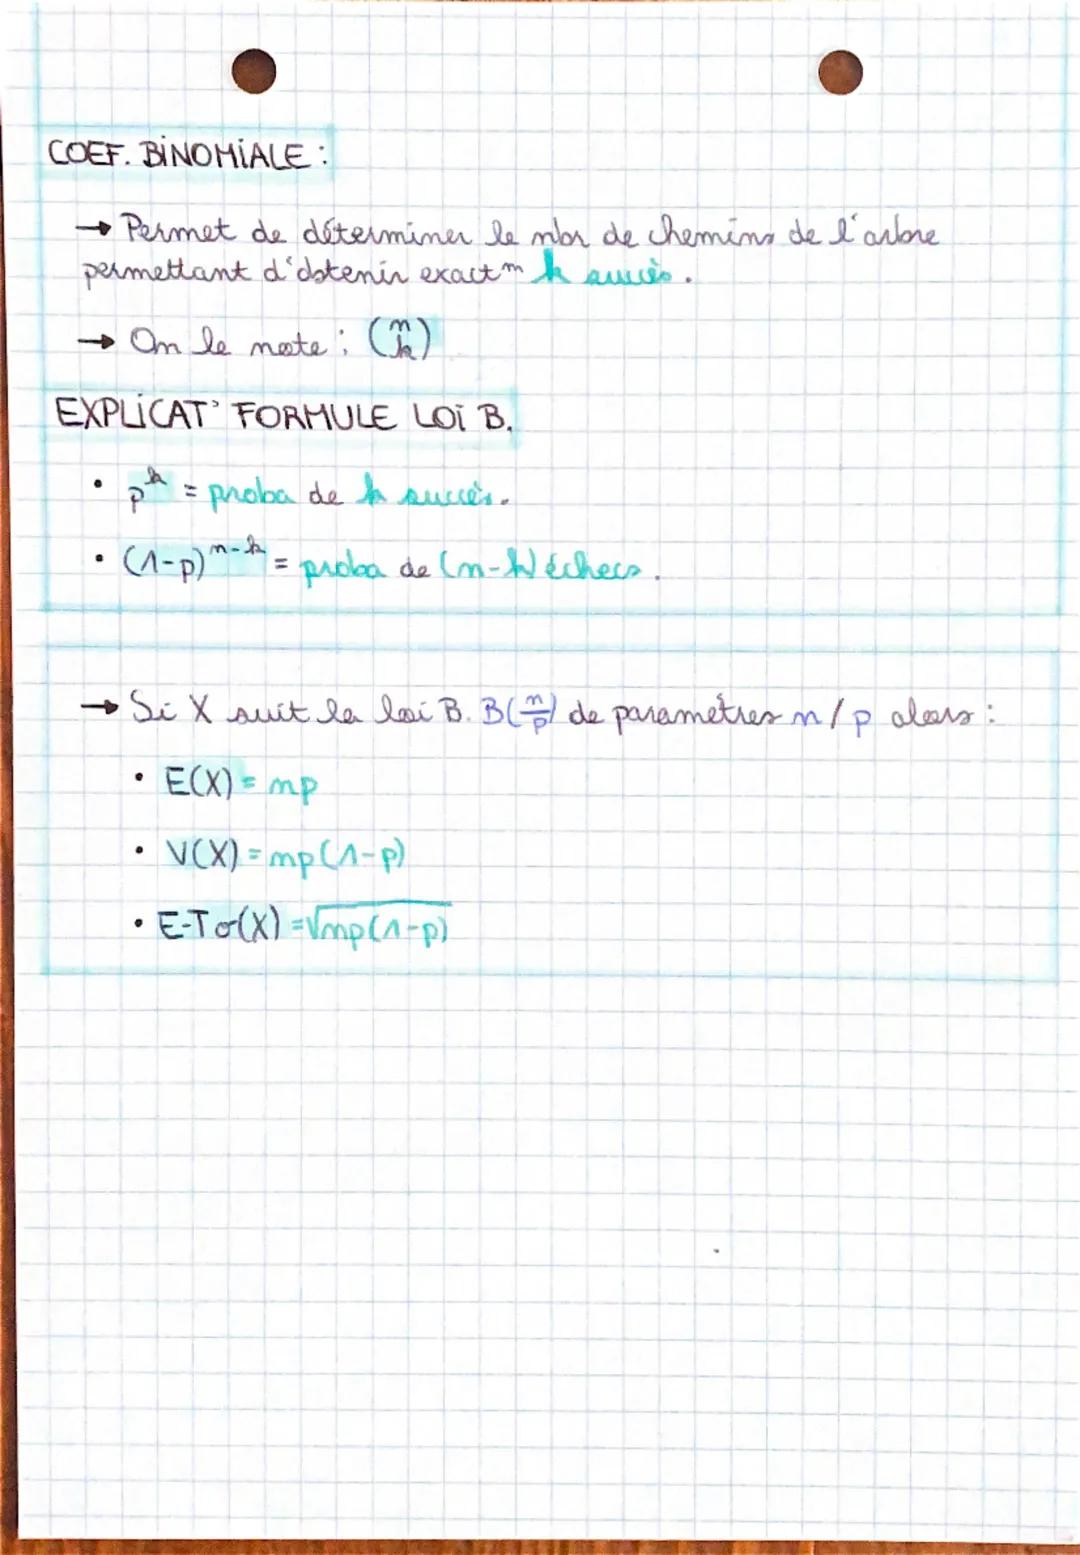 COEF. BINOMIALE :
→ Permet de déterminer le nbr de chemins de l'arbre
permettant d'obtenir exactᵐ k succès.
→ On le note : (n k)
EXPLICAT° FORMULE LOI B.
• p^k = proba de k succès.
• (1-p)^(n-k) = proba de (n-k) échecs.
→ Si X suit la loi B. B(n/p) de paramètres n/p alors :
• E(X) = np
• V(X) = np(1-p)
• E-T σ(X) = √np(1-p)